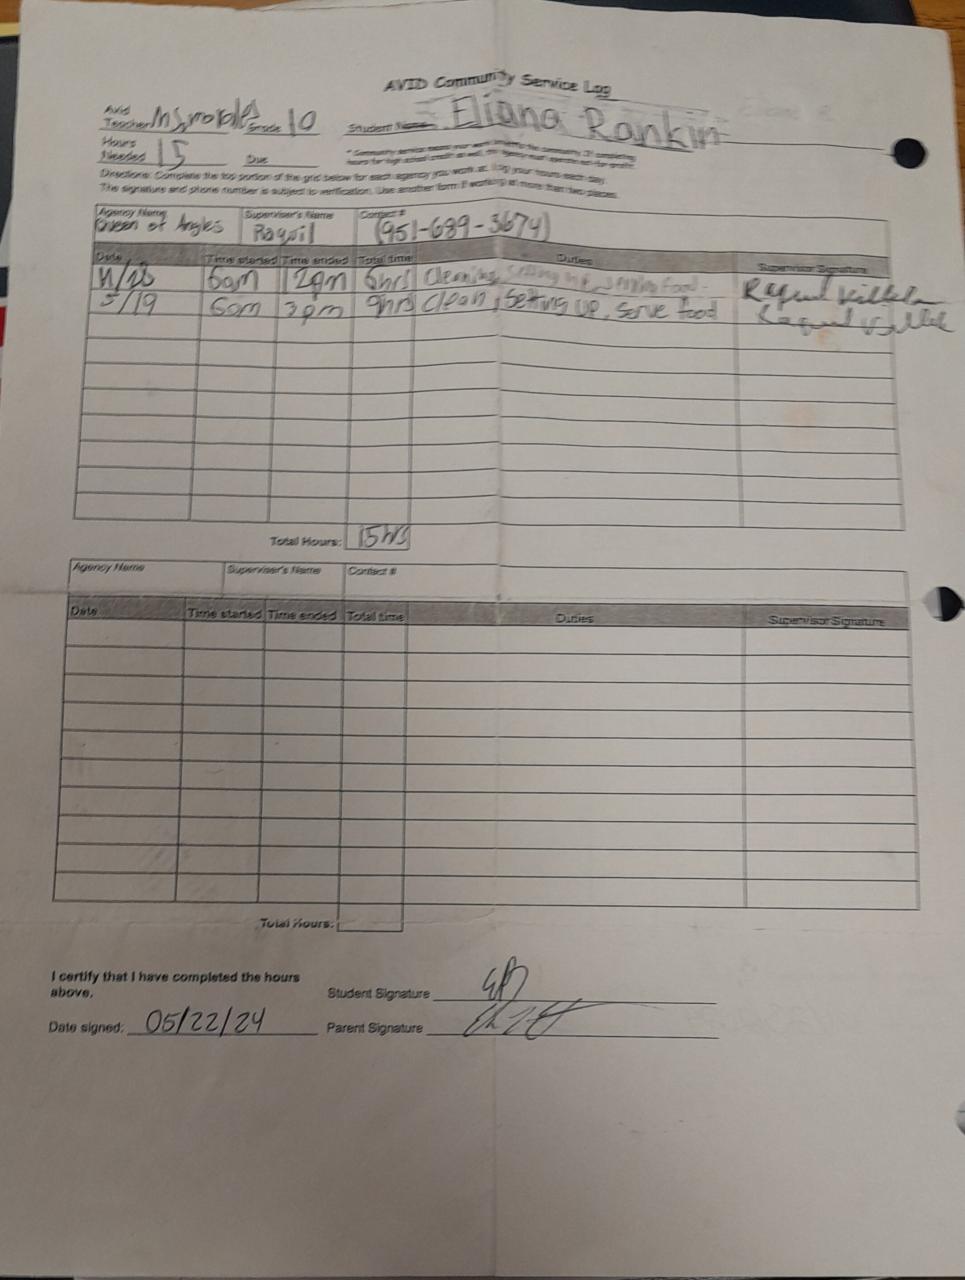 AVID Community Service Log
Avid Teacher Ms. morales Grade 10 Student Name Eliana Rankin
Hours Needed 15 Due
* Community service means your work benefits the community. If completing
hours for high school credit as well, the agency must
Directions: Complete the top portion of the grid below for each agency you work at. Log your hours each day.
The signature and phone number is subject to verification. Use another form if working at more than two places.
Agency Name Supervisor's Name Contact #
Queen of Angles Raquil (951-689-3674)
Date Time started Time ended Total time Duties Supervisor Signature
6am 12pm 6hrs Cleaning, setting up, serving food.
5/19 6am 3pm 9hrs Clean, Setting UP, Serve food
Total Hours: 15hrs
Agency Name Supervisor's Name Contact #
Date Time started Time ended Total time Duties Supervisor Signature
Total Hours:
I certify that I have completed the hours
above.
Student Signature
Date signed: 05/22/24 Parent Signature